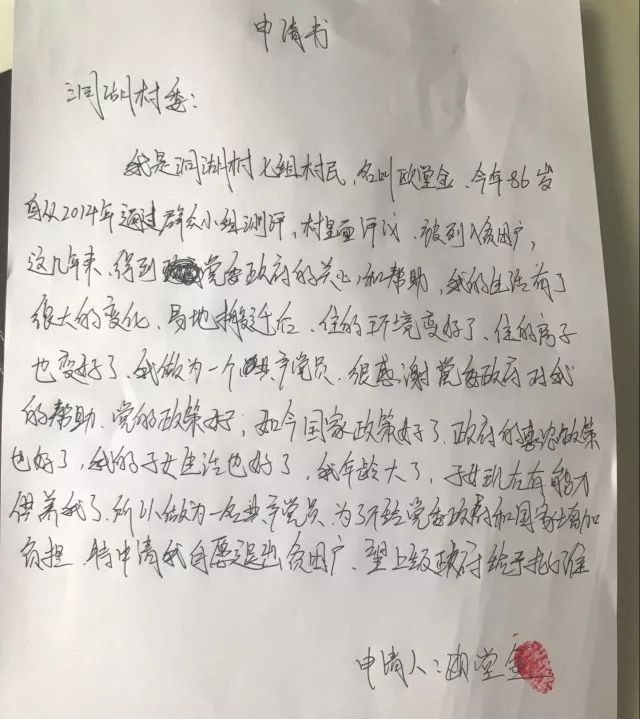 申请书
洞湖村委：
我是洞湖村七组村民，名叫欧堂金、今年86岁
自从2014年通过群众小组测评，村里面评议、被列入贫困户，
这几年来、得到党委政府的关心和帮助，我的生活有了
很大的变化、易地搬迁后、住的环境变好了、住的房子
也变好了、我做为一个共产党员、很感谢党委政府对我
的帮助、党的政策好，如今国家政策好了、政府的惠农政策
也好了，我的子女生活也好了，我年龄大了，子女现在有能力
供养我了、所以做为一名共产党员、为了不给党委政府和国家增加
负担、特申请我自愿退出贫困户、望上级政府给予批准
申请人：欧堂金